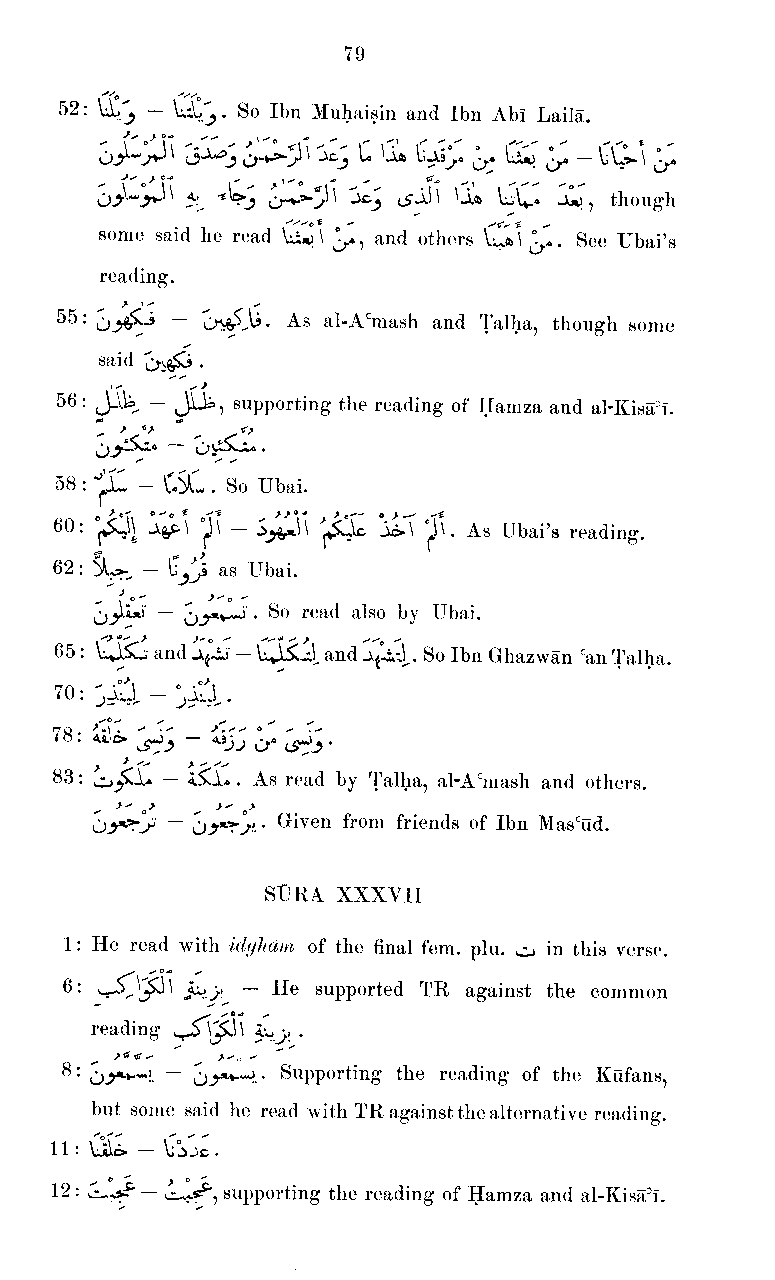 79
52: وَيْلَنَا — وَيْلَتَنَا. So Ibn Muḥaiṣin and Ibn Abī Lailā.
مَنْ أَحْيَانَا — مَنْ بَعَثَنَا مِنْ مَرْقَدِنَا هٰذَا مَا وَعَدَ ٱلرَّحْمٰنُ وَصَدَقَ ٱلْمُرْسَلُونَ
بَعْدَ مَمَاتِنَا هٰذَا ٱلَّذِى وَعَدَ ٱلرَّحْمٰنُ وَجَاءَ بِهِ ٱلْمُرْسَلُونَ, though
some said he read مَنْ أَبْعَثَنَا, and others مَنْ أَهَبَّنَا. See Ubai's
reading.
55: فَاكِهُونَ — فَاكِهِينَ. As al-Aʿmash and Ṭalḥa, though some
said فَكِهِينَ.
56: ظِلَالٍ — ظُلَلٍ, supporting the reading of Ḥamza and al-Kisāʾī.
مُتَّكِئُونَ — مُتَّكِئِينَ.
58: سَلٰمٌ — سَلَامًا. So Ubai.
60: أَلَمْ أَعْهَدْ إِلَيْكُمْ — أَلَمْ آخُذْ عَلَيْكُمُ ٱلْعُهُودَ. As Ubai's reading.
62: جِبِلًّا — قُرُونًا as Ubai.
تَعْقِلُونَ — تَسْمَعُونَ. So read also by Ubai.
65: تُكَلِّمُنَا and تَشْهَدُ — لِتُكَلِّمَنَا and لِتَشْهَدَ. So Ibn Ghazwān ʿan Ṭalḥa.
70: لِيُنْذِرَ — لِيُنْذِرْ.
78: وَنَسِىَ خَلْقَهُ — وَنَسِىَ مَنْ رَزَقَهُ.
83: مَلَكُوتُ — مَلَكَةُ. As read by Ṭalḥa, al-Aʿmash and others.
تُرْجَعُونَ — يُرْجَعُونَ. Given from friends of Ibn Masʿūd.
SŪRA XXXVII
1: He read with idghām of the final fem. plu. ت in this verse.
6: بِزِينَةٍ ٱلْكَوَاكِبِ — He supported TR against the common
reading بِزِينَةِ ٱلْكَوَاكِبِ.
8: يَسَّمَّعُونَ — يَسْمَعُونَ. Supporting the reading of the Kūfans,
but some said he read with TR against the alternative reading.
11: خَلَقْنَا — عَدَدْنَا.
12: عَجِبْتَ — عَجِبْتُ, supporting the reading of Ḥamza and al-Kisāʾī.